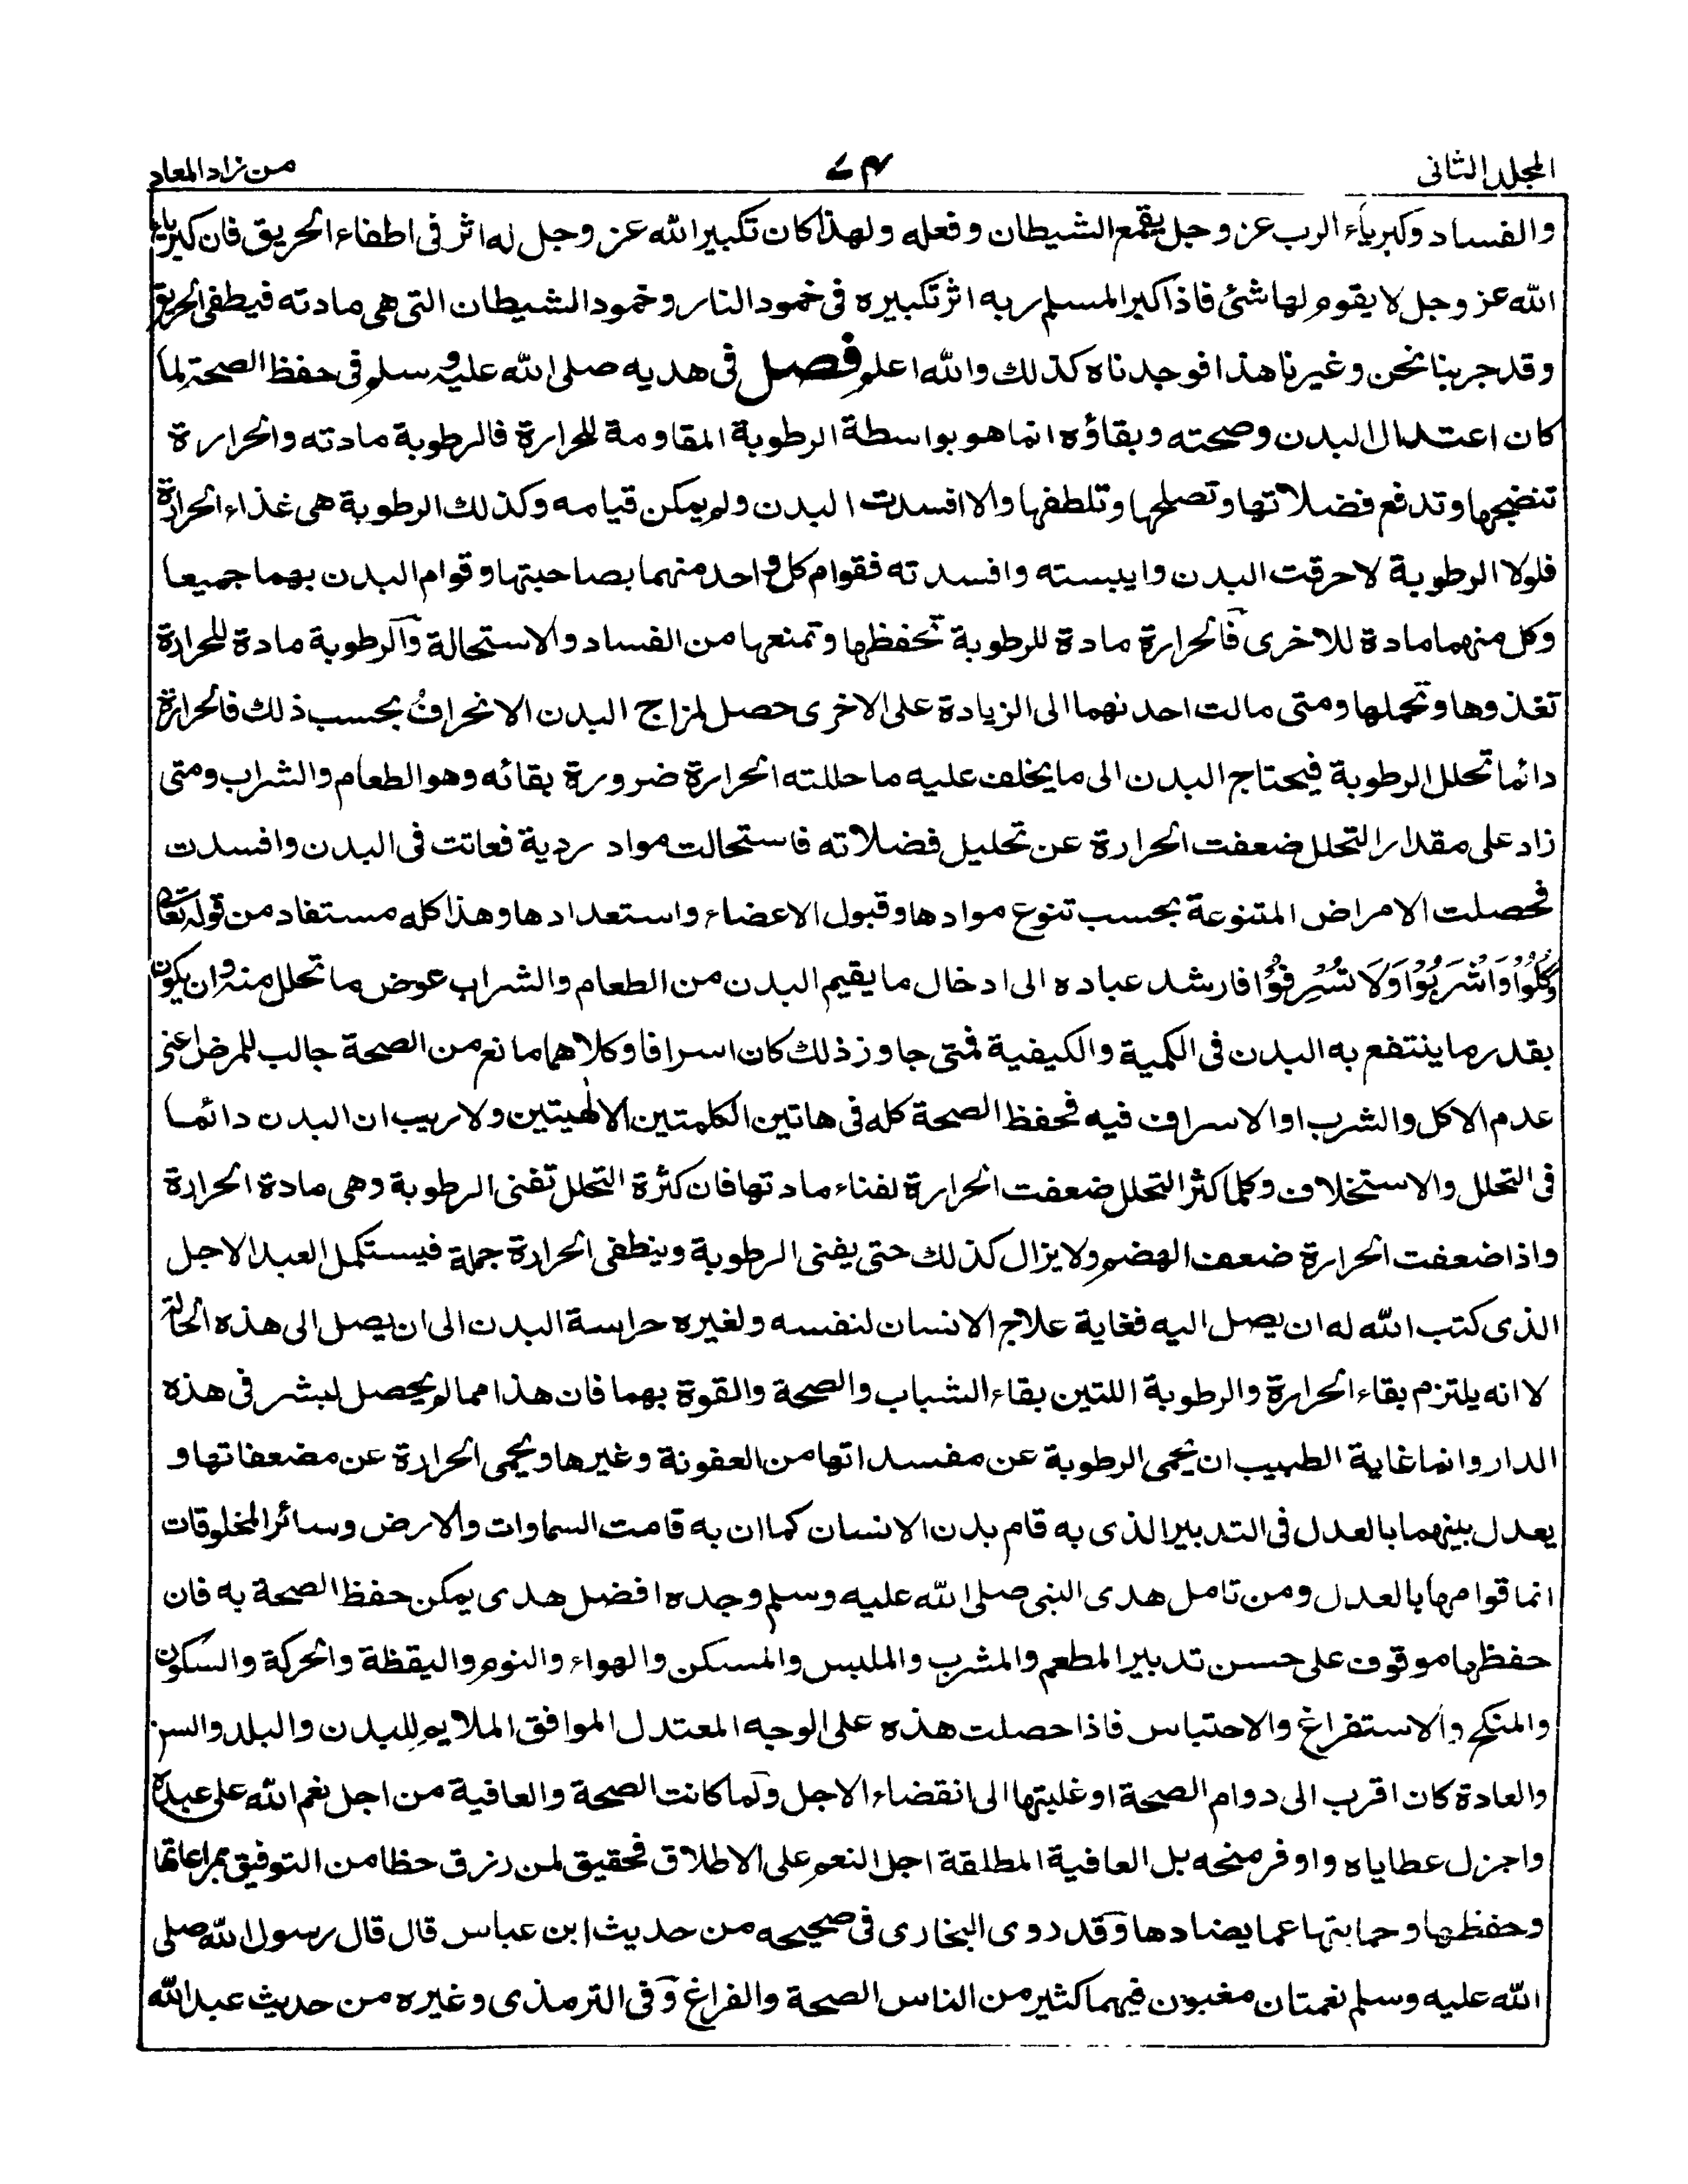 المجلد الثانى
٧٤
من زاد المعاد
والفساد وكبرياء الرب عز وجل يقمع الشيطان وفعله ولهذا كان تكبير الله عز وجل له اثر فى اطفاء الحريق فان كبرياء
الله عز وجل لا يقوم لها شئ فاذا كبر المسلم ربه اثر تكبيره فى خمود النار وخمود الشيطان التى هى مادته فيطفى الحريق
وقد جربنا نحن وغيرنا هذا فوجدناه كذلك والله اعلم فصل فى هديه صلى الله عليه وسلم فى حفظ الصحة لما
كان اعتدال البدن وصحته وبقاؤه انما هو بواسطة الرطوبة المقاومة للحرارة فالرطوبة مادته والحرارة
تنضجها وتدفع فضلاتها وتصلحها وتلطفها والا افسدت البدن ولم يمكن قيامه وكذلك الرطوبة هى غذاء الحرارة
فلولا الرطوبة لاحرقت البدن وايبسته وافسدته فقوام كل واحد منهما بصاحبتها وقوام البدن بهما جميعا
وكل منهما مادة للاخرى فالحرارة مادة للرطوبة تحفظها وتمنعها من الفساد والاستحالة والرطوبة مادة للحرارة
تغذوها وتحملها ومتى مالت احدىهما الى الزيادة على الاخرى حصل لمزاج البدن الانحراف بحسب ذلك فالحرارة
دائما تحلل الرطوبة فيحتاج البدن الى ما يخلف عليه ما حللته الحرارة ضرورة بقائه وهو الطعام والشراب ومتى
زاد على مقدار التحلل ضعفت الحرارة عن تحليل فضلاته فاستحالت مواد ردية فعاثت فى البدن وافسدت
فحصلت الامراض المتنوعة بحسب تنوع موادها وقبول الاعضاء واستعدادها وهذا كله مستفاد من قوله تعالى
وَكُلُوْا وَاشْرَبُوْا وَلَا تُسْرِفُوْا فارشد عباده الى ادخال ما يقيم البدن من الطعام والشراب عوض ما تحلل منه وان يكون
بقدر ما ينتفع به البدن فى الكمية والكيفية فمتى جاوز ذلك كان اسرافا وكلاهما مانع من الصحة جالب للمرض اعنى
عدم الاكل والشرب او الاسراف فيه فحفظ الصحة كله فى هاتين الكلمتين الالهيتين ولا ريب ان البدن دائما
فى التحلل والاستخلاف وكلما كثر التحلل ضعفت الحرارة لفناء مادتها فان كثرة التحلل تفنى الرطوبة وهى مادة الحرارة
واذا ضعفت الحرارة ضعف الهضم ولا يزال كذلك حتى يفنى الرطوبة وينطفى الحرارة جملة فيستكمل العبد الاجل
الذى كتب الله له ان يصل اليه فغاية علاج الانسان لنفسه ولغيره حراسة البدن الى ان يصل الى هذه الحالة
لا انه يلتزم بقاء الحرارة والرطوبة اللتين بقاء الشباب والصحة والقوة بهما فان هذا مما لم يحصل لبشر فى هذه
الدار وانما غاية الطبيب ان يحمى الرطوبة عن مفسداتها من العفونة وغيرها ويحمى الحرارة عن مضعفاتها و
يعدل بينهما بالعدل فى التدبير الذى به قام بدن الانسان كما ان به قامت السماوات والارض وسائر المخلوقات
انما قوامها بالعدل ومن تامل هدى النبى صلى الله عليه وسلم وجده افضل هدى يمكن حفظ الصحة به فان
حفظها موقوف على حسن تدبير المطعم والمشرب والملبس والمسكن والهواء والنوم واليقظة والحركة والسكون
والمنكح والاستفراغ والاحتباس فاذا حصلت هذه على الوجه المعتدل الموافق الملايم للبدن والبلد والسن
والعادة كان اقرب الى دوام الصحة او غلبتها الى انقضاء الاجل ولما كانت الصحة والعافية من اجل نعم الله على عبده
واجزل عطاياه واوفر منحه بل العافية المطلقة اجل النعم على الاطلاق فحقيق لمن رزق حظا من التوفيق مراعاتها
وحفظها وحمايتها عما يضادها وقد روى البخارى فى صحيحه من حديث ابن عباس قال قال رسول الله صلى
الله عليه وسلم نعمتان مغبون فيهما كثير من الناس الصحة والفراغ وفى الترمذى وغيره من حديث عبد الله